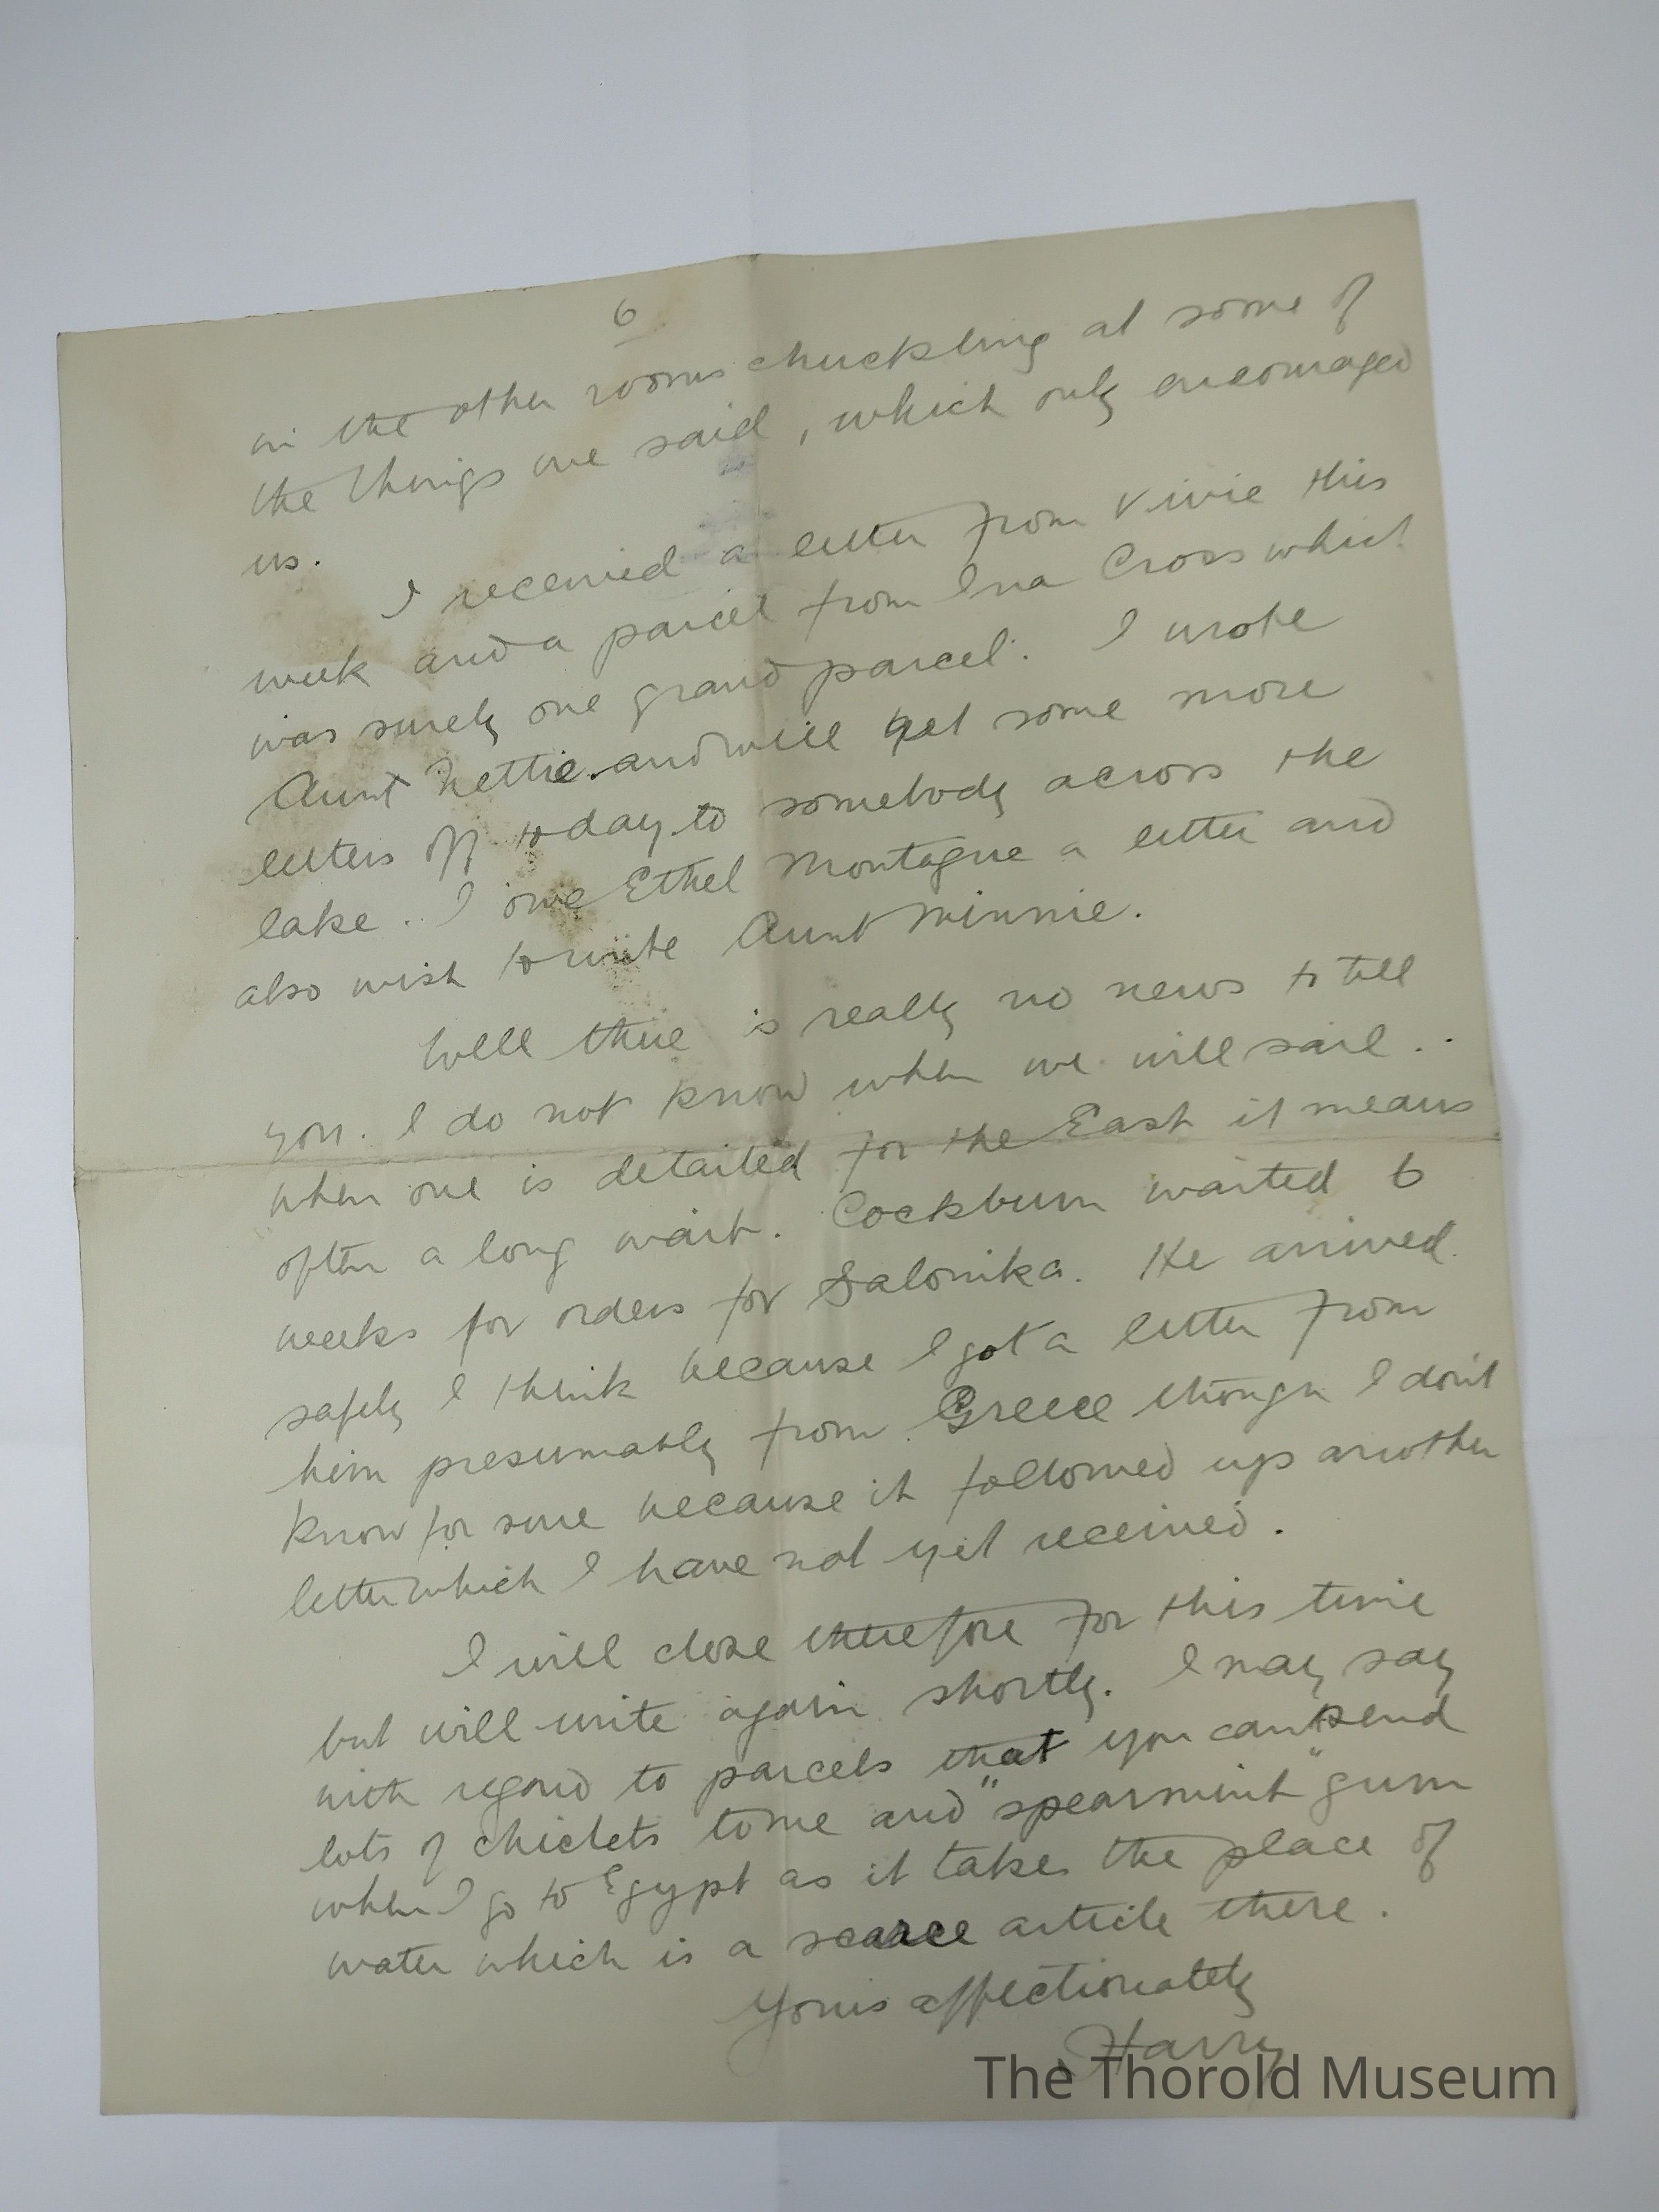 6
in the other rooms chuckling at some of
the things we said, which only encouraged
us.
I received a letter from Vivie this
week and a parcel from Ina Cross which
was surely one grand parcel. I wrote
Aunt Nettie and will get some more
letters off today to somebody across the
lake. I owe Ethel Montague a letter and
also wish to write Aunt Minnie.
Well there is really no news to tell
you. I do not know when we will sail..
when one is detailed for the East it means
often a long wait. Cockburn waited 6
weeks for orders for Salonika. He arrived
safely I think because I got a letter from
him presumably from Greece though I don't
know for sure because it followed up another
letter which I have not yet received.
I will close therefore for this time
but will write again shortly. I may say
with regard to parcels that you can send
lots of chiclets to me and "spearmint" gum
when I go to Egypt as it takes the place of
water which is a scarce article there.
Yours affectionately
Harry
The Thorold Museum